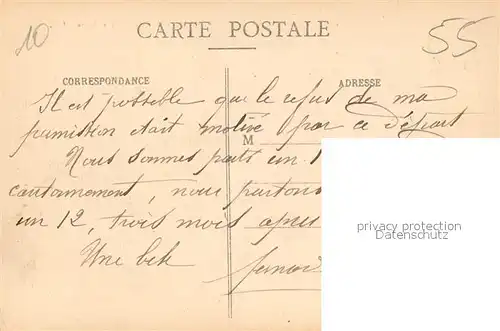 10
CARTE POSTALE
55
CORRESPONDANCE
ADRESSE
Il est possible que le refus de ma
permission était motivé par ce départ
M
Nous sommes partis un 1
cantonnement, nous partons
un 12, trois mois après
Une bek
privacy protection
Datenschutz